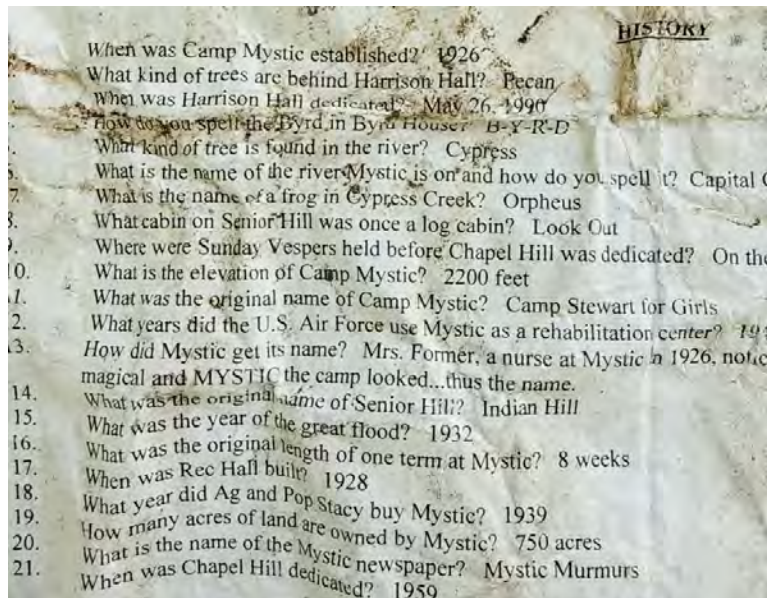 HISTORY
When was Camp Mystic established? 1926
What kind of trees are behind Harrison Hall? Pecan
When was Harrison Hall dedicated? May 26, 1990
How do you spell the Byrd in Byrd House? B-Y-R-D
What kind of tree is found in the river? Cypress
What is the name of the river Mystic is on and how do you spell it? Capital
7. What is the name of a frog in Cypress Creek? Orpheus
8. What cabin on Senior Hill was once a log cabin? Look Out
9. Where were Sunday Vespers held before Chapel Hill was dedicated? On the
10. What is the elevation of Camp Mystic? 2200 feet
11. What was the original name of Camp Mystic? Camp Stewart for Girls
2. What years did the U.S. Air Force use Mystic as a rehabilitation center?
13. How did Mystic get its name? Mrs. Former, a nurse at Mystic in 1926,
magical and MYSTIC the camp looked...thus the name.
14. What was the original name of Senior Hill? Indian Hill
15. What was the year of the great flood? 1932
16. What was the original length of one term at Mystic? 8 weeks
17. When was Rec Hall built? 1928
18. What year did Ag and Pop Stacy buy Mystic? 1939
19. How many acres of land are owned by Mystic? 750 acres
20. What is the name of the Mystic newspaper? Mystic Murmurs
21. When was Chapel Hill dedicated? 1959